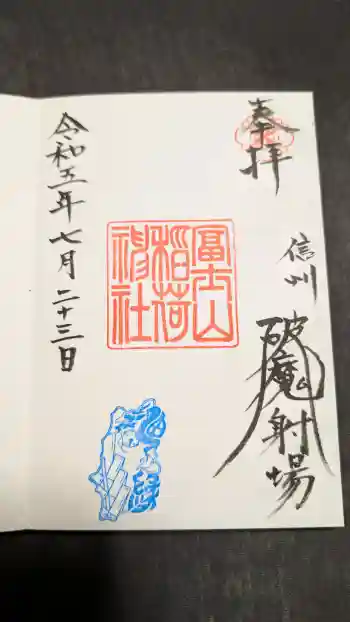 奉拝
信州
破魔射場
冨士山
稲荷
神社
令和五年七月二十三日